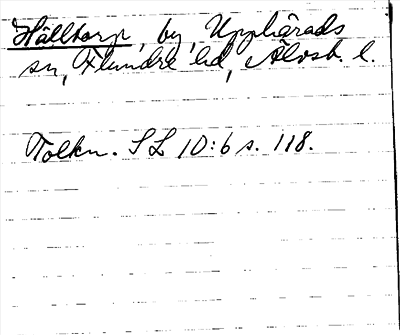 Hälltorp, by, Upphärads
sn, Flundre hd, Älvsb. l.
Tolkn. SL 10:6 s. 118.